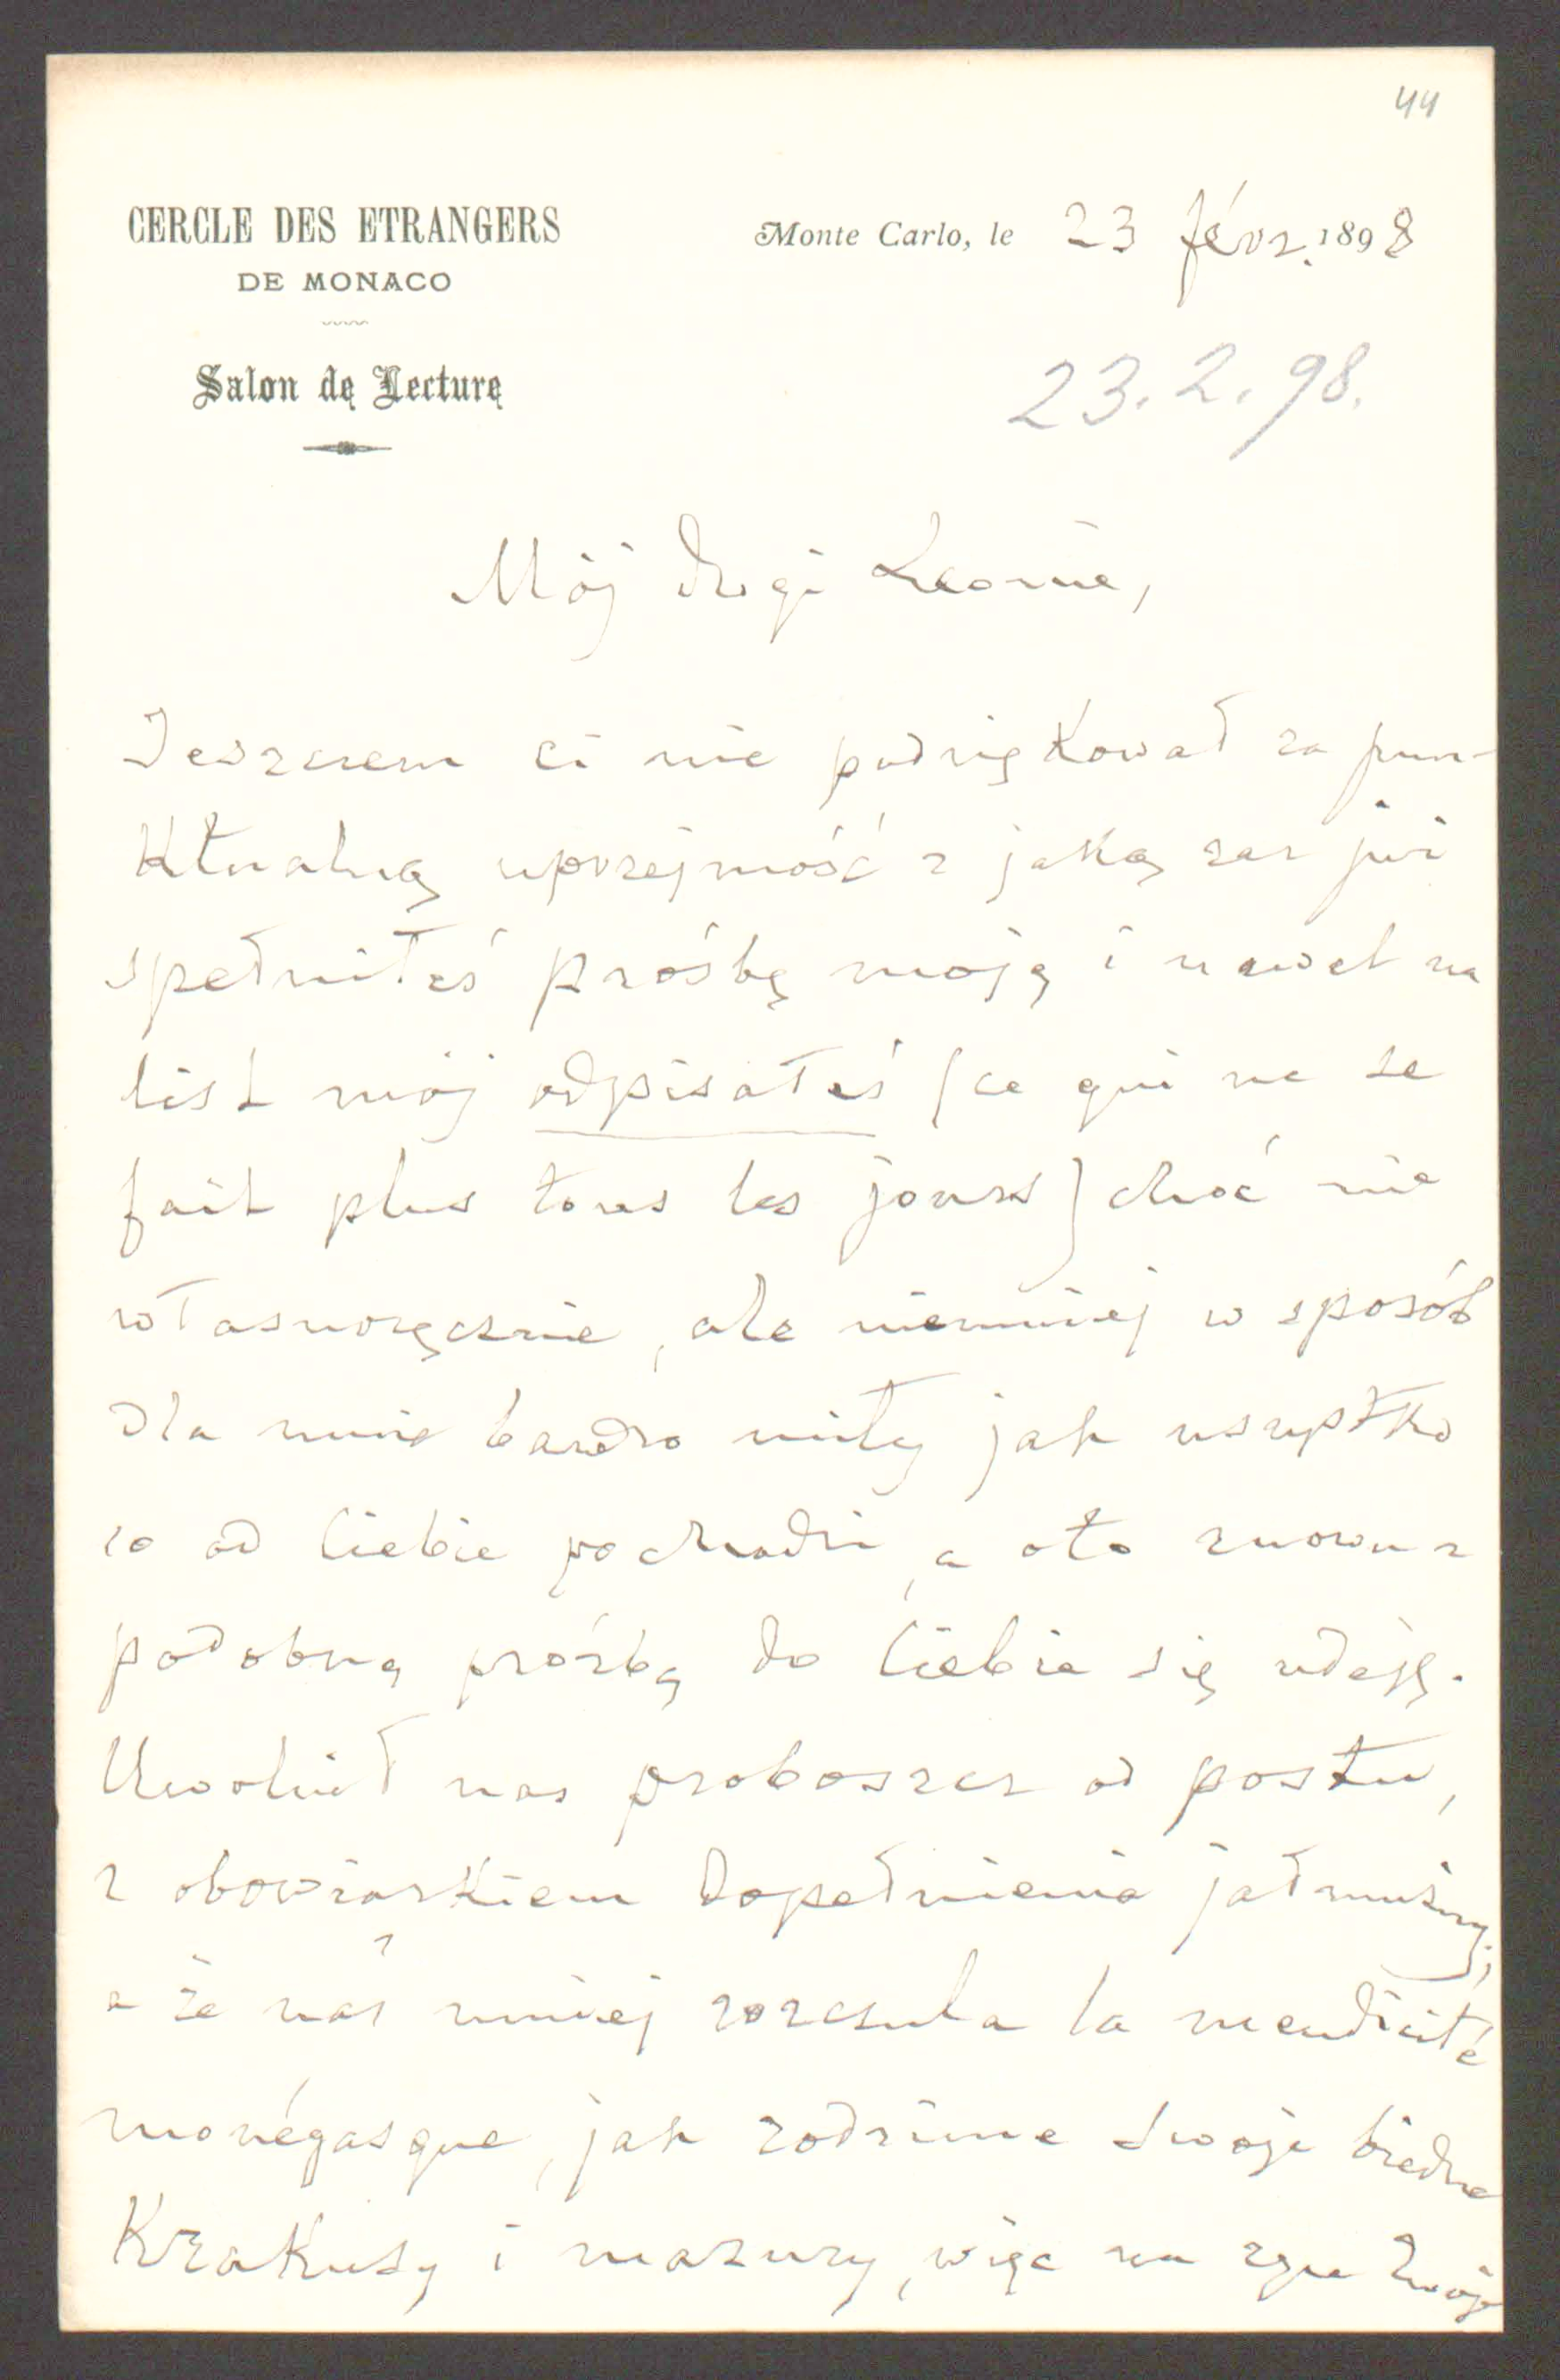 44
CERCLE DES ETRANGERS
DE MONACO
Salon de Lecture
Monte Carlo, le 23 févr. 1898
23. 2. 98.
Mój drogi Leonie,
Jeszczem ci nie podziękował za pun-
ktualną uprzejmość z jaką raz już
spełniłeś prośbę moją i nawet na
list mój odpisałeś (ce qui ne se
fait plus tous les jours) choć nie
własnoręcznie, ale niemniej w sposób
dla mnie bardzo miły jak wszystko
co od Ciebie pochodzi, a oto znowu z
podobną prośbą do Ciebie się udaję.
Uwolnił nas proboszcz od postu,
z obowiązkiem dopełnienia jałmużny;
a że nas mniej rozczula la mendicité
monégasque, jak rodzime swoje biedne
Krakusy i mazury, więc na ręce Twoje